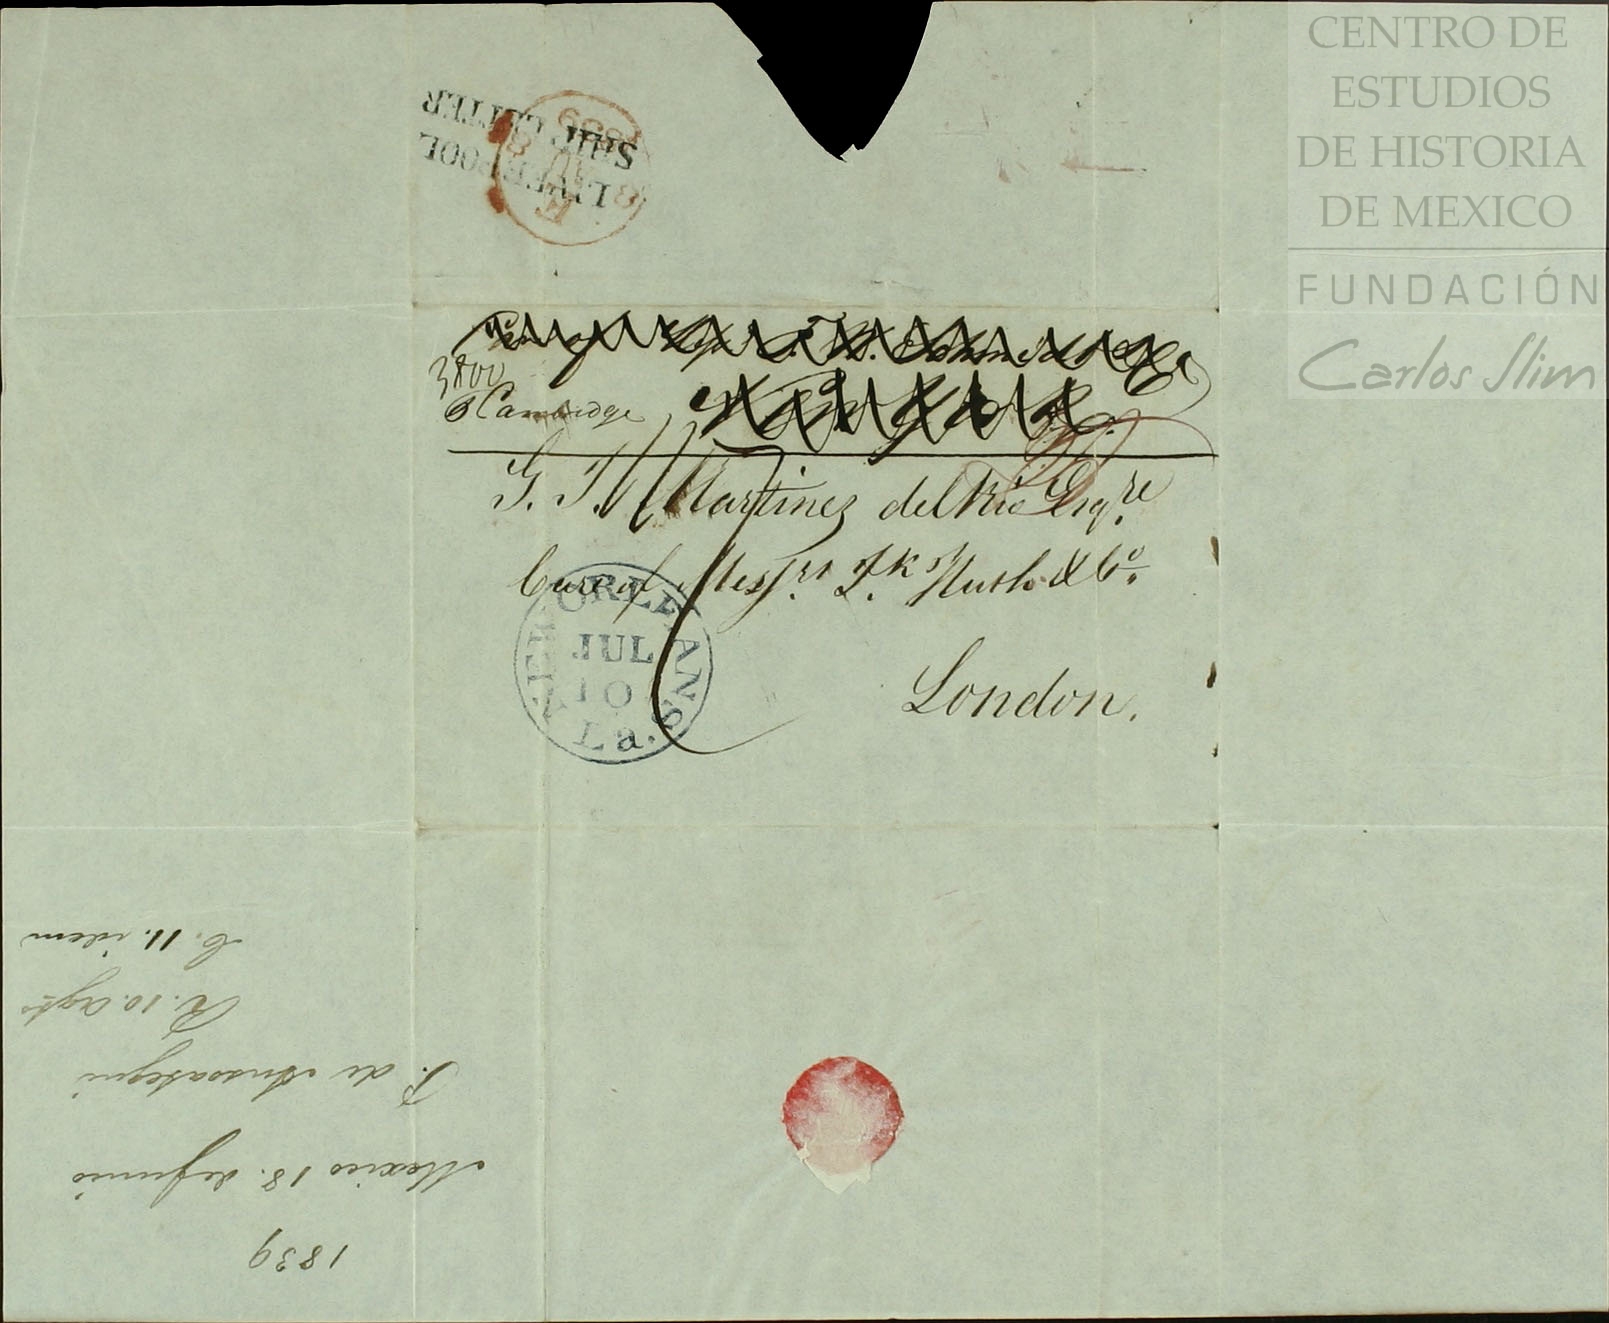 CENTRO DE
ESTUDIOS
DE HISTORIA
DE MEXICO
FUNDACIÓN
Carlos Slim
LIVERPOOL
SHIP LETTER
F
8 AU 8
1839
Cambridge
G. T. Martinez del Rio Esqre.
Care of Messrs. Fk. Huth & Co.
London.
NEW ORLEANS
JUL
10
La.
1839
Mexico 18. de Junio
F. de Ansoategui
R. 10. Agto
C. 11. idem